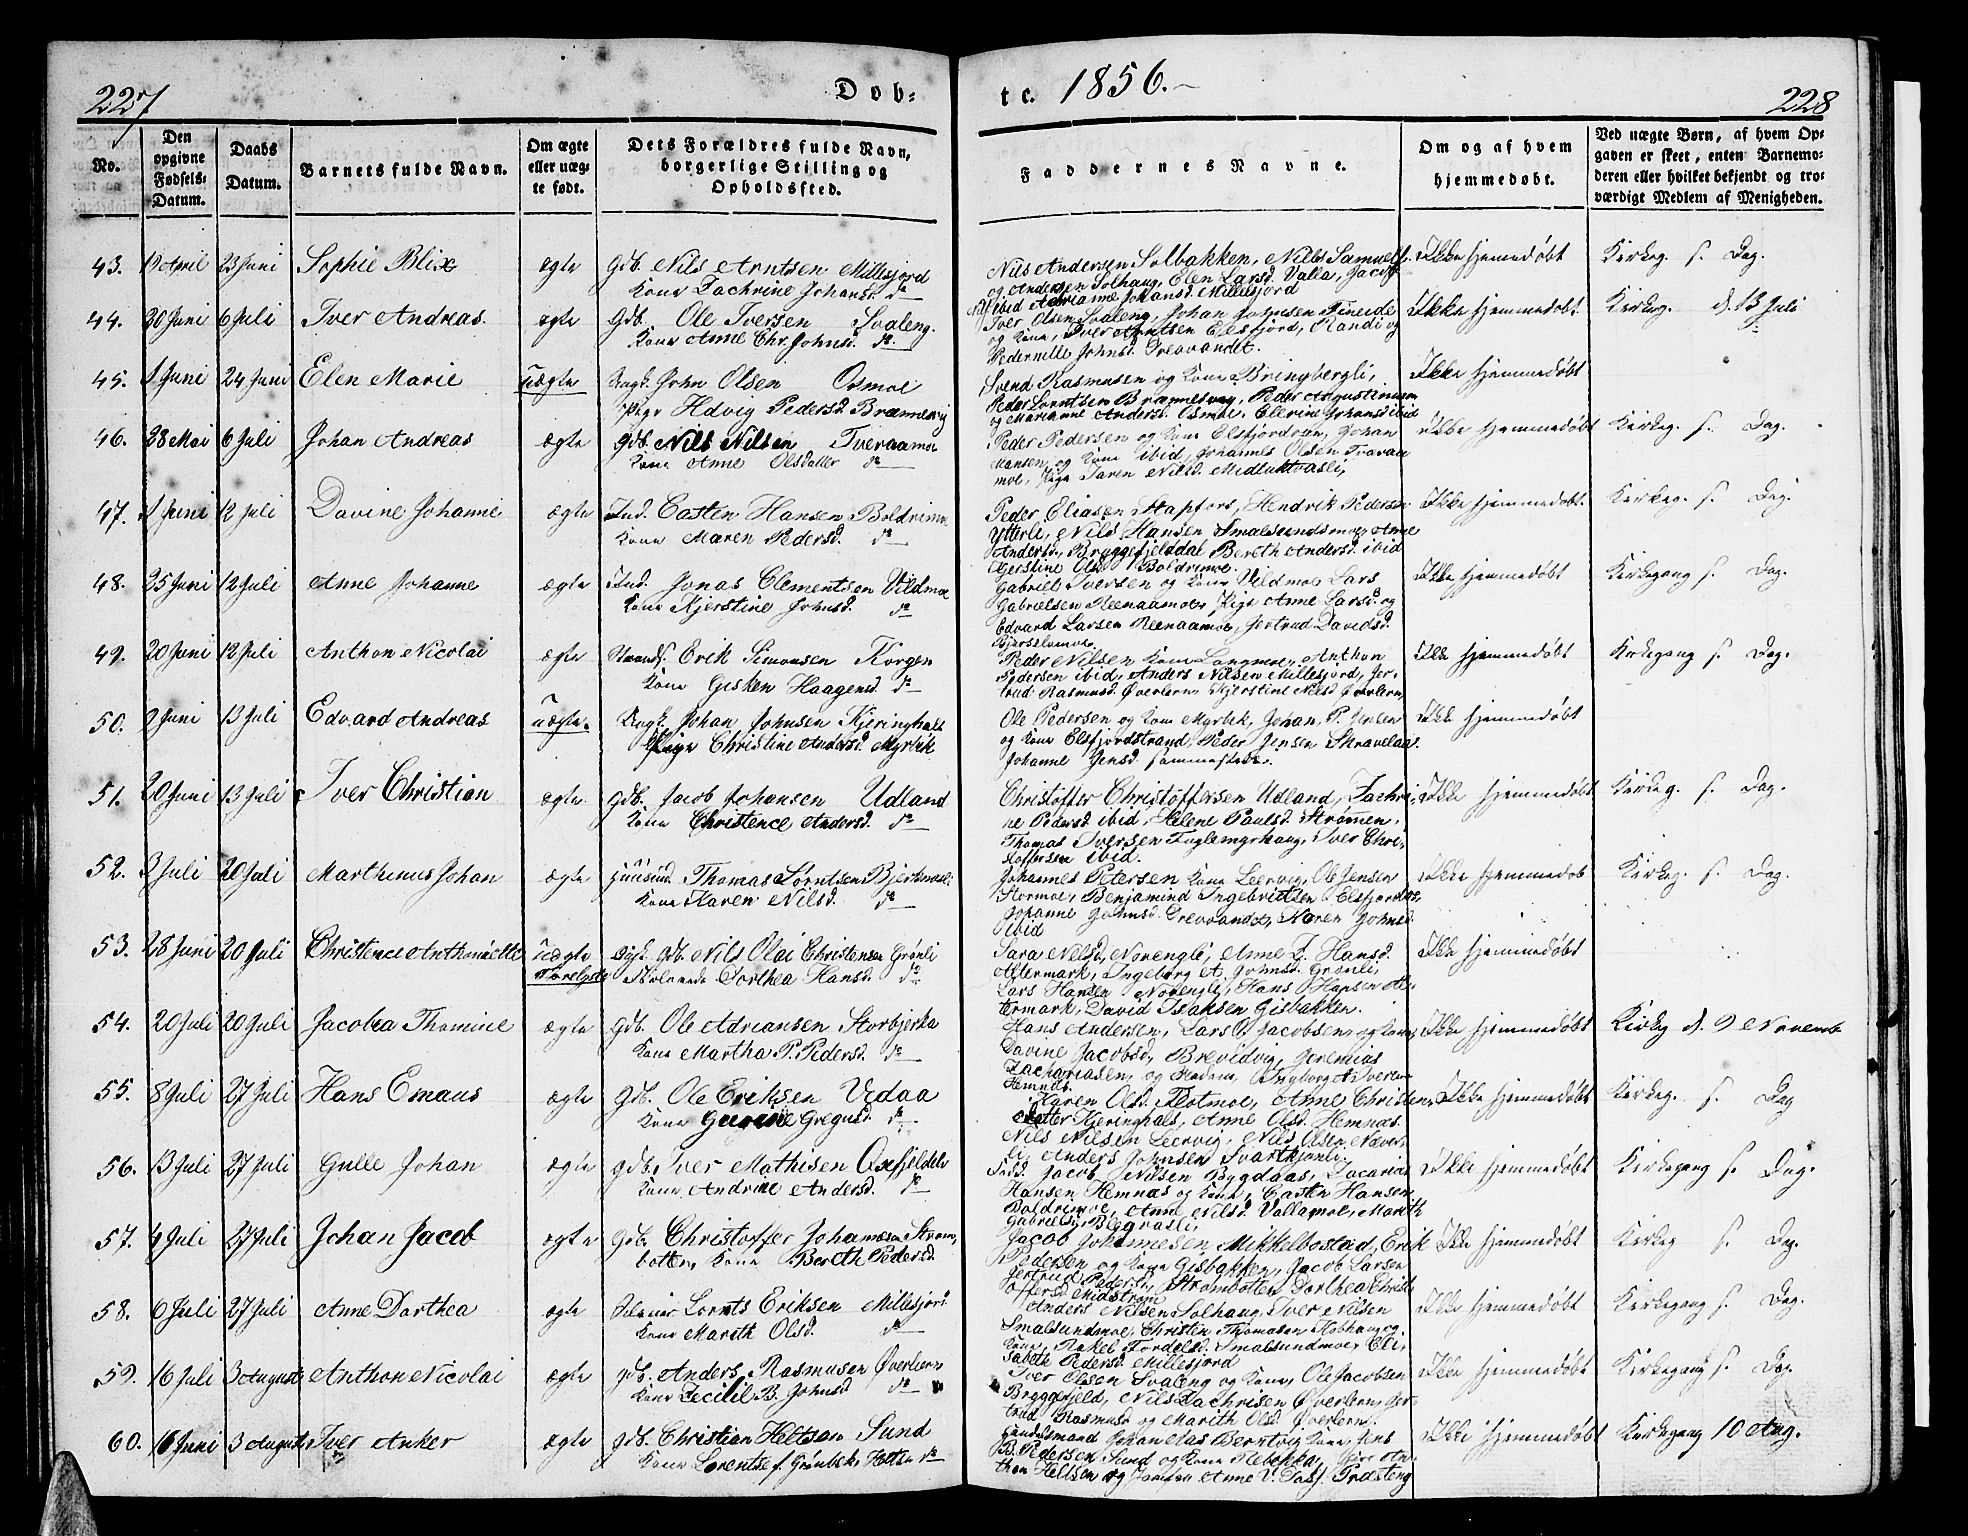 227
Døb=
tc. 1856.
228
No.
Den opgivne Fødsels-Datum.
Daabs Datum.
Barnets fulde Navn.
Om ægte eller uægte født.
Dets Forældres fulde Navn, borgerlige Stilling og Opholdssted.
Faddernes Navne.
Om og af hvem hjemmedøbt.
Ved uægte Børn, af hvem Opgaven er skeet, enten Barnemoderen eller hvilket bekjendt og troværdigt Medlem af Menigheden.
43. 19 April 23 Juni Sophie Blix ægte Gdb. Nils Arntsen Millesjord
Kone Zachrine Johansd. do
Nils Andersen Solbakken, Nils Samuels.
og Andersen Solhaug, Elen Larsd. Valla, Jacob
ibid Adrianne Johansd. Millesjord
Ikke hjemmedøbt Kirkeg. s. Dag.
44. 30 Juni 6 Juli Iver Andreas. ægte Gdb. Ole Iversen Svaleng.
Kone Anne Chr. Johnsd. do
Iver Olsen Svaleng, Johan Johnsen Fineide
og Kone, Iver Arntsen Elsfjord, Randi og
Pedernille Johnsd. Drevvandet.
Ikke hjemmedøbt. Kirkeg. d. 13 Juli
45. 1 Juni 24 Juni Elen Marie uægte Ungk. John Olsen Osmoe
Pige Hdvig Pedersd. Brænnevig
Svend Rasmusen og Kone Bringbergli,
Peder Lorntsen Brænnevig, Peder Augustinusen
og Marianne Andersd. Osmoe, Ellerine Johansd ibid
Ikke hjemmedøbt
46. 28 Mai 6 Juli Johan Andreas ægte Gdb. Nils Nilsen Tveraamoe
Kone Anne Olsdatter do
Peder Pedersen og Kone Elsfjordosen, Johan
Hansen og Kone ibid, Johannes Olsen Tveraa
moe, Pige Maren Nilsd. Midluktvasli,
Ikke hjemmedøbt Kirkeg. s. Dag.
47. 1 Juni 12 Juli Davine Johanne ægte Ind. Casten Hansen Boldrimoe
Kone Maren Pedersd. do
Peder Eliasen Stapfors, Hendrik Pedersen
Ytterli, Nils Hansen Smalsundsmoe, Anne
Andersd. Bryggefjelddal Bereth Andersd. ibid
Kjerstine Olsd Boldrimoe.
Ikke hjemmedøbt. Kirkeg. s. Dag.
48. 25 Juni 12 Juli Anne Johanne ægte Ind. Jonas Clementsen Vildmoe
Kone Kjerstine Johnsd. do
Gabriel Iversen og Kone Vildmoe Lars
Gabrielsen Reenaamoe, Pige Anne Larsd. og
Edvard Larsen Reenaamoe, Jertrud Davidsd.
Bjerselvmoe.
Ikke hjemmedøbt Kirkegang s. Dag.
49. 20 Juni 12 Juli Anthon Nicolai ægte Erik Simonsen Korgen
Kone Gisken Haagensd. do
Peder Nilsen Kone Langmoe, Anthon
Pedersen ibid, Anders Nilsen Millesjord, Jer-
trud Rasmusd Øverlern, Kjerstine Nilsd Øverlern,
Ikke hjemmedøbt Kirkegang s. Dag.
50. 2 Juni 13 Juli Edvard Andreas uægte. Ungk. Johan Johnsen Kjeringhals
Pige Christine Andersd. Myrbæk
Ole Pedersen og Kone Myrbæk, Johan P. Jensen
og Kone Elsfjordstrand, Peder Jensen Skravelaas.
Johanne Jensd sammesteds.
Ikke hjemmedøbt
51. 20 Juni 13 Juli Iver Christian ægte Gdb. Jacob Johansen Udland
Kone Christence Andersd. do
Christoffer Christoffersen Udland, Zachri-
ne Pedersd ibid, Helene Paulsd Strømen.
Thomas Iversen Fuglemyrhaug, Iver Chri-
stoffersen ibid.
Ikke hjemmedøbt Kirkeg. s. Dag.
52. 3 Juli 20 Juli Marthinus Johan ægte Huusmd Thomas Lorntsen Bjerkmoeli
Kone Karen Nilsd. do
Johannes Petersen Kone Leervig, Ole Jensen
Stormoe, Benjamind Ingebrigtsen Elsfjordose,
Johanne Johnsd. Drevvandet, Maren Johnsd
ibid
Ikke hjemmedøbt Kirkeg. s. Dag.
53. 28 Juni 20 Juli Christence Anthonette uægte
Gdb. Nils Olai Christensen Grønli
Dorthea Hansd. do
Sara Nilsd Novengli, Anne E. Hansd.
Altermark, Ingeborg A. Johnsd. Grønli,
Lars Hansen Novengli, Hans Hansen Al-
termark, David Isaksen Gisbakken.
Ikke hjemmedøbt
54. 20 Juli 20 Juli Jacobea Thomine ægte Gdb. Ole Adriansen Storbjerka
Kone Martha P. Pedersd. do
Hans Andersen, Lars O. Jacobsen og Kone,
Davine Jacobsd, Brevidvig, Jeremias
Zachariasen, og Madam, Ingborg A Iversen
Hemnes.
Ikke hjemmedøbt Kirkeg d. 9 Novemb
55. 8 Juli 27 Juli Hans Emaus ægte Gdb. Ole Eriksen Vedaa
Kone Gregusd. do
Karen Olsd. Flotmoe, Anne Christen-
datter Kjeringhals, Anne Olsd. Hemnæs.
Nils Nilsen Leervig, Nils Olsen Næver-
li, Anders Johnsen Svartkjønli.
Ikke hjemmedøbt Kirkeg. s. Dag
56. 13 Juli 27 Juli Gulle Johan ægte Gdb. Iver Mathisen Oxfjeldeli
Kone Andrine Andersd. do
Jacob Nilsen Bygdaas, Zacarias
Hansen Hemnæs og Kone, Casten Hansen
Boldrimoe, Ane Nilsd Vallamoe, Marith
Gabrielsd, Blegvasli,
Ikke hjemmedøbt Kirkegang s. Dag.
57. 4 Juli 27 Juli Johan Jacob ægte Gdb. Christoffer Johannesen Strøm-
botten, Kone Berith Pedersd
Jacob Johannesen Mikkelbostad, Erik
Pedersen og Kone Gisbakken, Jacob Larsen
Jertrud Pedersd, Strømbotten, Dorthea Christ-
offersd Midstrøm
Ikke hjemmedøbt Kirkeg s. Dag.
58. 6 Juli 27 Juli Anne Dorthea ægte Lornts Eriksen Millesjord.
Kone Marith Olsd. do
Anders Nilsen Solhaug, Iver Nilsen
Smalsundmoe, Christen Thomasen Kobhaug og
Kone, Rakel Fordelsd. Smalsundmoe, Eli-
sabeth Pedersd. Millesjord
Ikke hjemmedøbt Kirkegang s. Dag.
59. 16 Juli 3 August Anthon Nicolai ægte Gdb. Anders Rasmusen Øverlern
Kone Cecilie B. Johnsd do
Iver Olsen Svaleng og Kone, Ole Jacobsen
Bryggefjeld, Nils Zachrisen Øverlern, Jer-
trud Rasmusd og Marith Olsd Øverlern,
Ikke hjemmedøbt Kirkegang s. Dag.
60. 16 Juni 3 August Iver Anker ægte Gdb. Christian Heltsen Sund
Kone Lorentse f. Grønbek Heltsen do
Handelsmand Johan Aas Berntvig Kone, Jens
B. Pedersen Sund og Kone Rebekka, An-
thon Heltsen og Jomfru Anne V. Præsteng
Ikke hjemmedøbt Kirkegang 10 Aug.